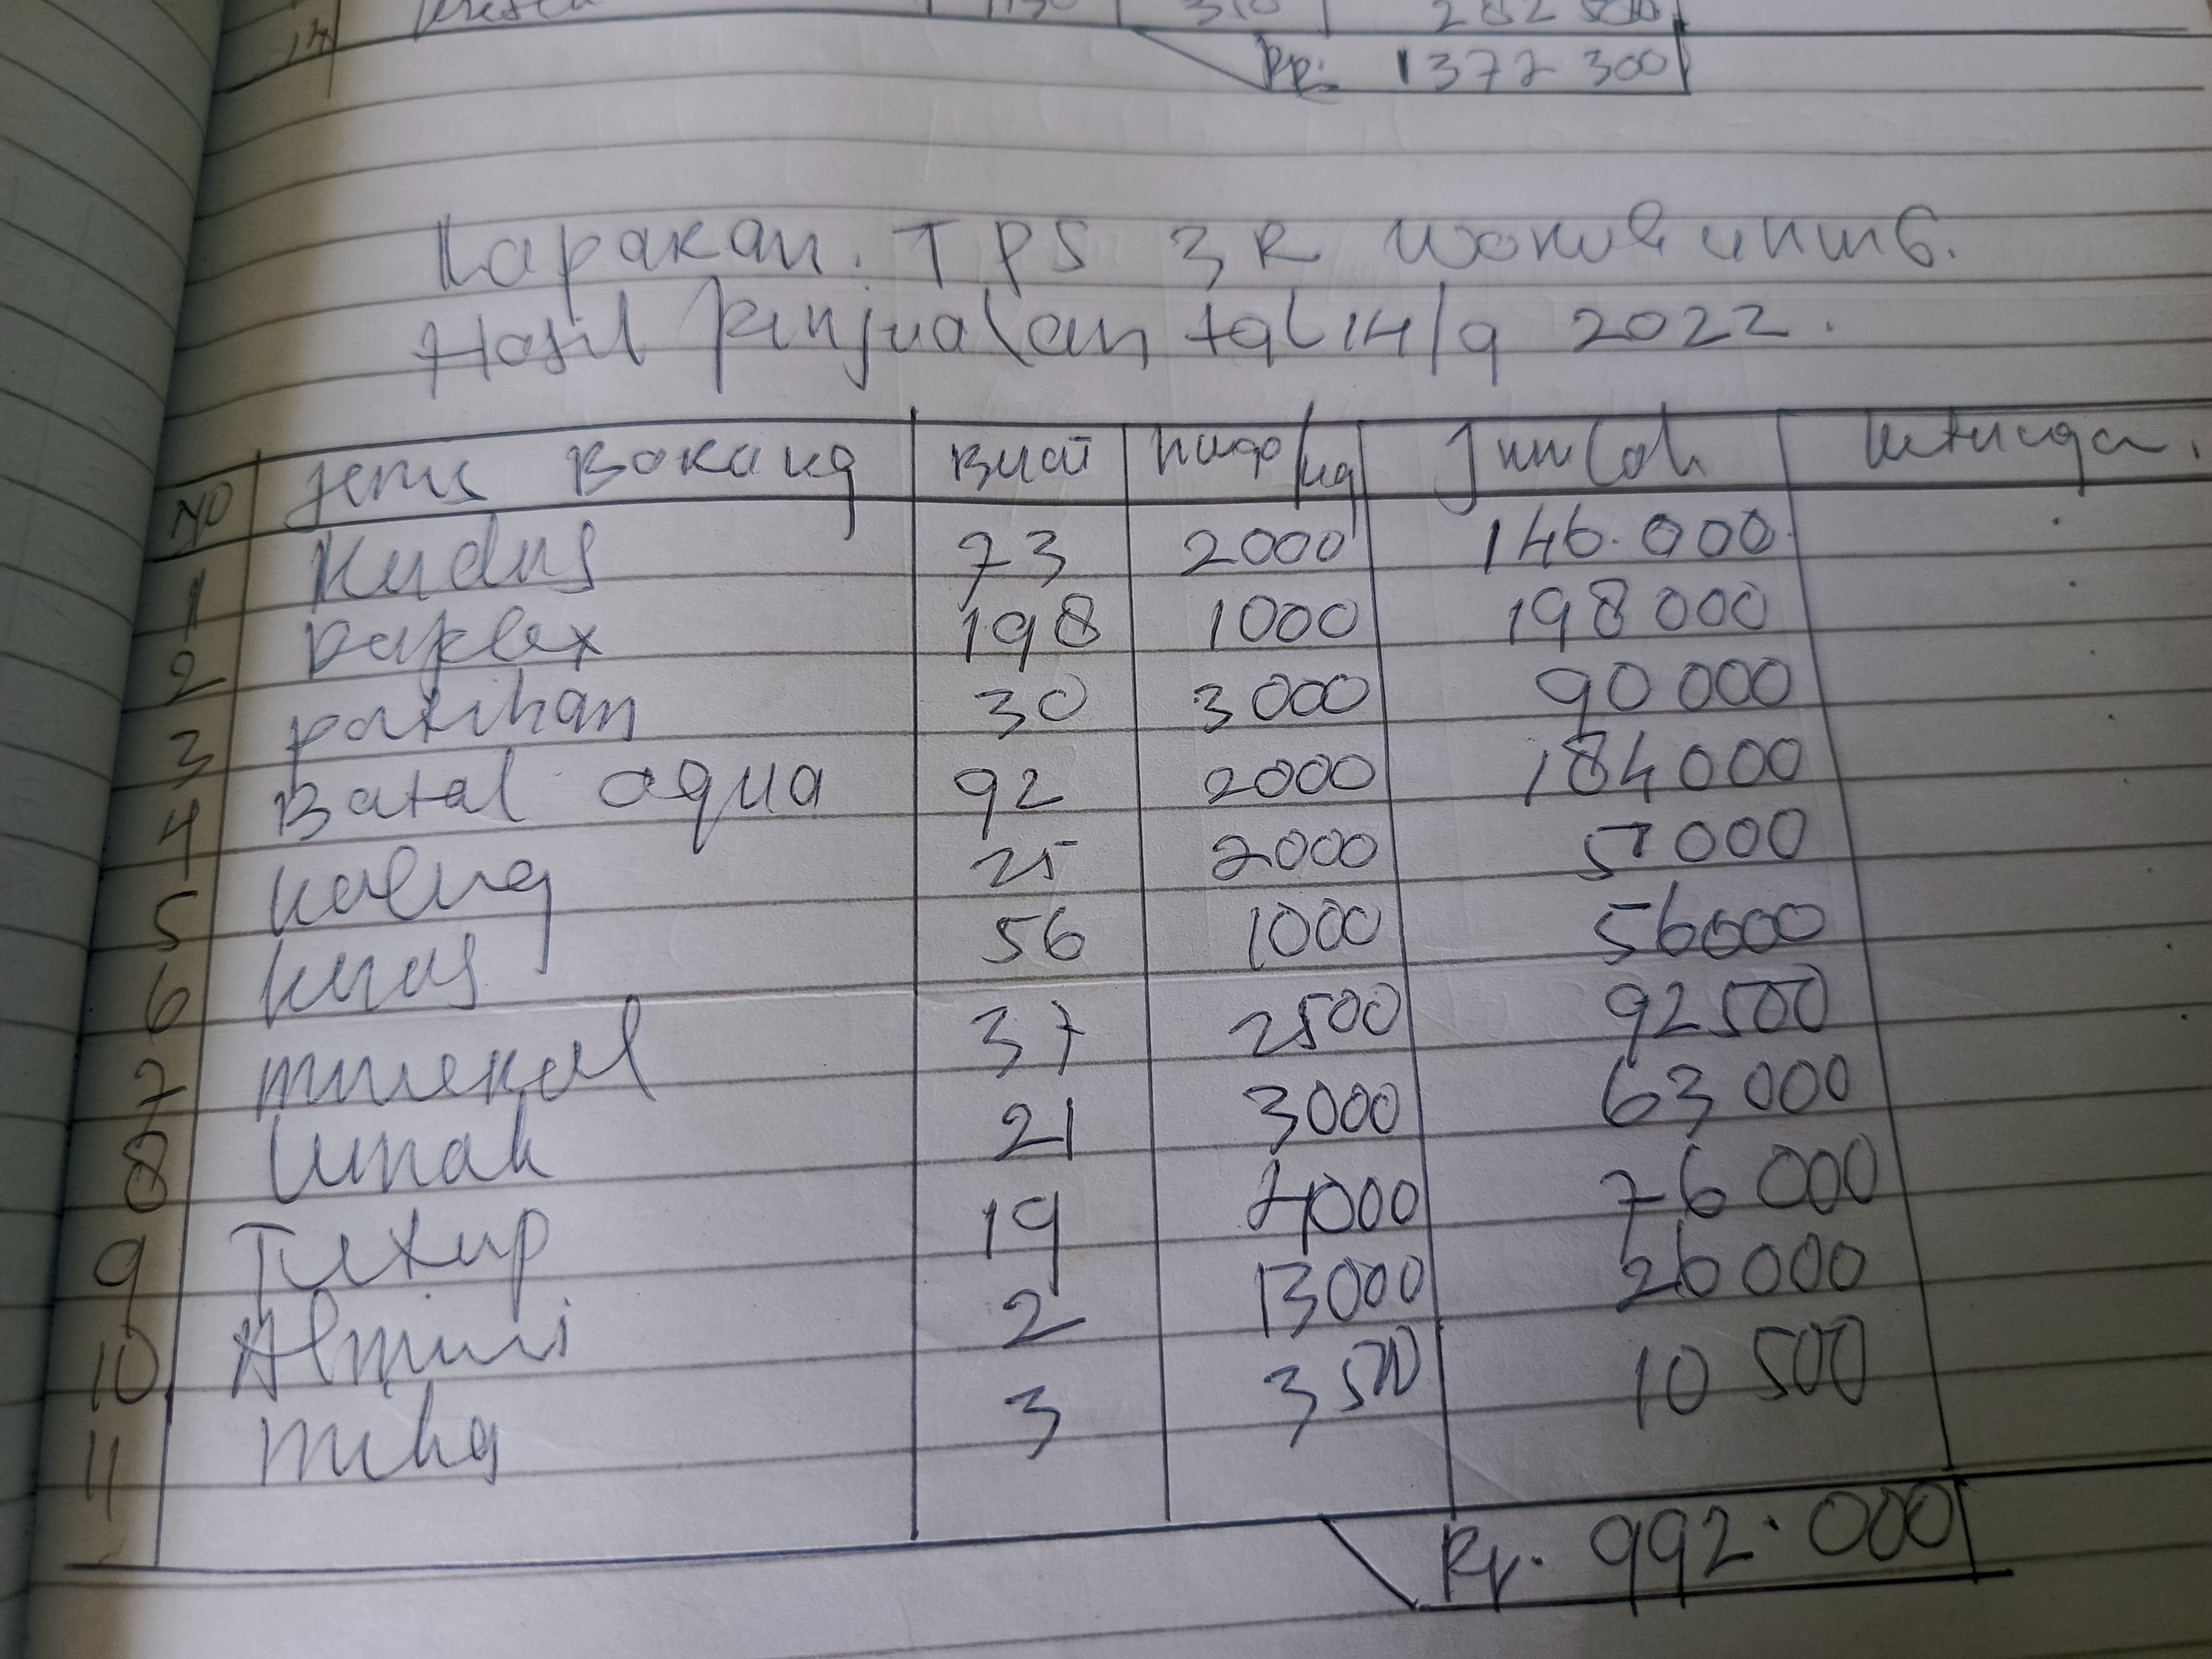 14 310 282 500
Rp: 1372 300
Laporan. TPS 3R
Hasil penjualan tgl 14/9 2022.
NO Jenis Barang Berat harga/kg Jumlah
1 Kerdus 73 2000 146.000
2 Duplex 198 1000 198 000
3 putihan 30 3000 90 000
4 Botol aqua 92 2000 184 000
5 kaleng 25 2000 000
6 keras 56 1000 56000
7 37 2500 92 500
8 21 3000 63 000
9 Tutup 19 4000 76 000
10 Almini 2 13000 26 000
11 3 3500 10 500
Rp. 992.000